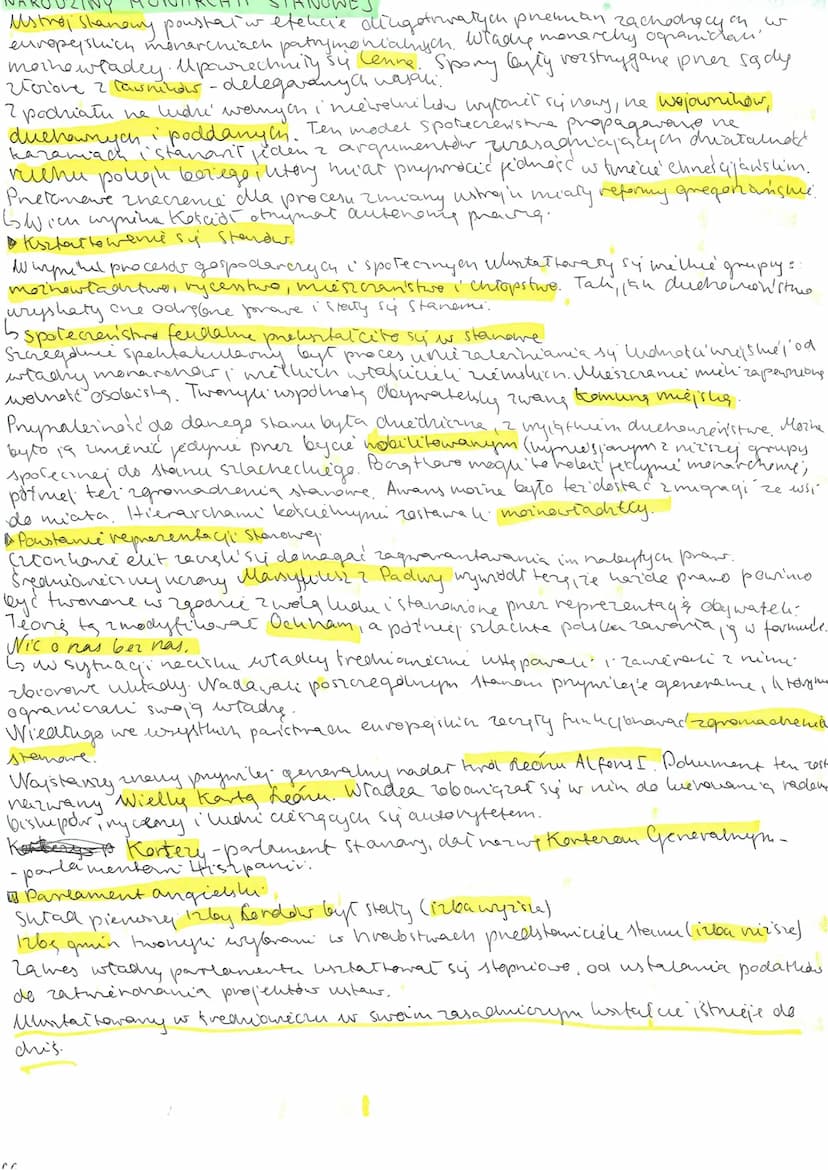 NARODZINY MONARCHII STANOWEJ
Ustrój stanowy powstał w efekcie długotrwałych przemian zachodzących w
europejskich monarchiach patrymonialnych. Władzę monarchy ograniczali
możnowładcy. Upowszechniły się lenna. Spory były rozstrzygane przez sądy
złożone z ławników - delegowanych wasali.
Z podziału na ludzi wolnych i niewolników wyłonił się nowy, na wojowników,
duchownych i poddanych. Ten model społeczeństwa propagowano na
kazaniach i stanowił jeden z argumentów uzasadniających działalność
ruchu pokoju bożego, który miał przywrócić jedność w świecie chrześcijańskim.
Przełomowe znaczenie dla procesu zmiany ustroju miały reformy gregoriańskie.
↳ W ich wyniku Kościół otrzymał autonomię prawną.
Kształtowanie się stanów.
W wyniku procesów gospodarczych i społecznych ukształtowały się wielkie grupy:
możnowładztwo, rycerstwo, mieszczaństwo i chłopstwo. Tak, jak duchowieństwo
uzyskały one odrębne prawa i stały się stanami.
↳ Społeczeństwo feudalne przekształciło się w stanowe
Szczególnie spektakularny był proces uniezależniania się ludności wiejskiej od
władzy monarchów i wielkich właścicieli ziemskich. Mieszczanie mieli zapewnioną
wolność osobistą. Tworzyli wspólnotę obywatelską zwaną komuną miejską.
Przynależność do danego stanu była dziedziczna, z wyjątkiem duchowieństwa. Można
było ją zmienić jedynie przez bycie nobilitowanym (wyniesionym z niższej grupy
społecznej do stanu szlacheckiego. Początkowo mogli to robić jedynie monarchowie,
później też zgromadzenia stanowe. Awans można było też dostać z migracji ze wsi
do miasta. Hierarchami kościelnymi zostawali możnowładcy.
Powstanie reprezentacji stanowej
Członkowie elit zaczęli się domagać zagwarantowania im nabytych praw.
Średniowieczny uczony Marsyliusz z Padwy wywiódł tezę, że każde prawo powinno
być tworzone w zgodzie z wolą ludu i stanowione przez reprezentację obywateli.
Teorię tą zmodyfikował Ockham, a później szlachta polska zawarła ją w formule.
Nic o nas bez nas.
↳ W sytuacji nacisku władcy średniowieczni ustępowali i zawierali z nimi
zbiorowe układy. Nadawali poszczególnym stanom przywileje generalne, którymi
ograniczali swoją władzę.
Niedługo we wszystkich państwach europejskich zaczęły funkcjonować zgromadzenia
stanowe.
Najstarszy znany przywilej generalny nadał król Leónu Alfons I. Dokument ten został
nazwany Wielką Kartą Leónu. Władca zobowiązał się w nim do kierowania radami
biskupów, rycerzy i ludzi cieszących się autorytetem.
Kortezy - parlament stanowy, dał nazwę Kortezom Generalnym -
- parlamentowi Hiszpanii.
Parlament angielski.
Skład pierwszej Izby Lordów był stały (izba wyższa)
Izbę gmin tworzyli wybrani w hrabstwach przedstawiciele stanu (izba niższa)
Zakres władzy parlamentu kształtował się stopniowo, od ustalania podatków
do zatwierdzania projektów ustaw.
Ukształtowany w średniowieczu w swoim zasadniczym kształcie istnieje do
dziś.